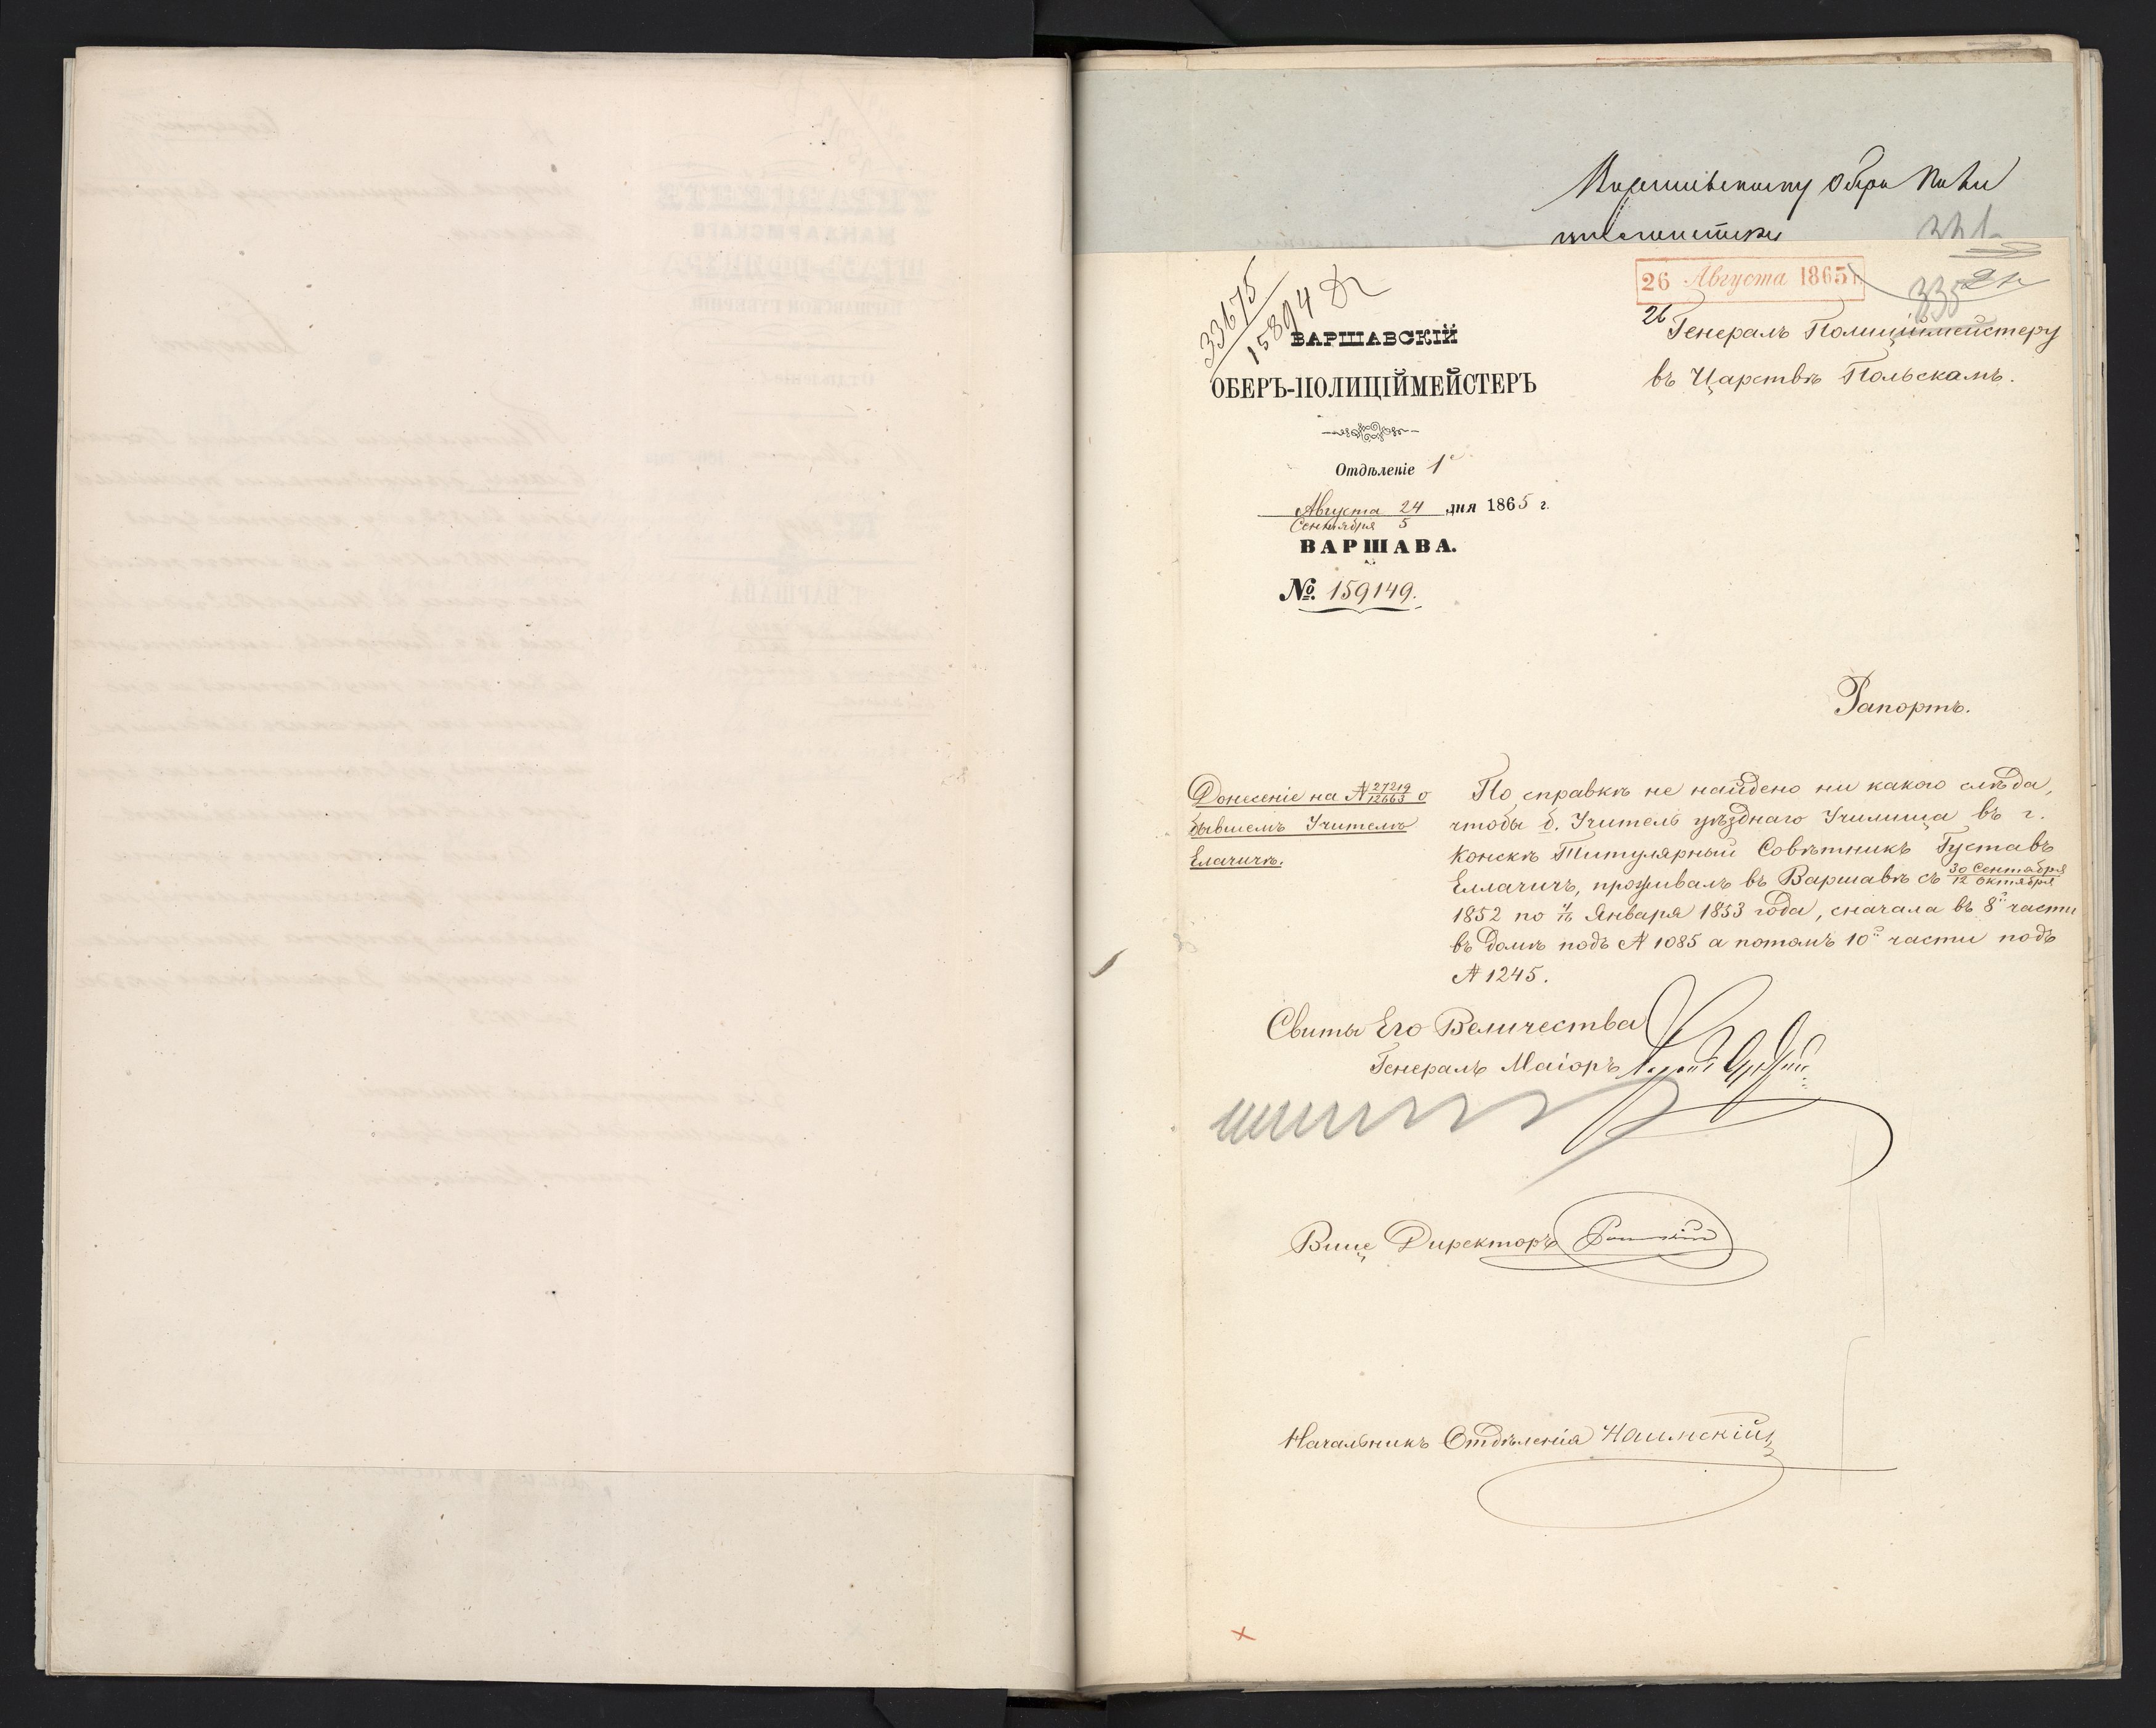 Варшавскому Оберъ Поли
33675
15894
26 Августа 1865 г.
26
335
ВАРШАВСКІЙ
ОБЕРЪ-ПОЛИЦІЙМЕЙСТЕРЪ
Отдѣленіе 1е
Августа 24 дня 1865 г.
Сентября 5
ВАРШАВА.
№. 159149.
Генералъ Полиціймейстеру
въ Царствѣ Польскомъ.
Рапортъ.
Донесеніе на № 27219/12663 о
бывшемъ Учителѣ
Елачичѣ.
По справкѣ не найдено ни какого слѣда,
чтобы б. Учитель уѣзднаго Училища въ г.
Конскѣ Титулярный Совѣтникъ Густавъ
Еллачичъ, проживалъ въ Варшавѣ съ 30 Сентября/12 Октября
1852 по 4/16 Января 1853 года, сначала въ 8й части
въ домѣ подъ № 1085 а потомъ 10й части подъ
№ 1245.
Свиты Его Величества
Генералъ Маіоръ
Вице Директоръ
Начальникъ Отдѣленія Наимскій